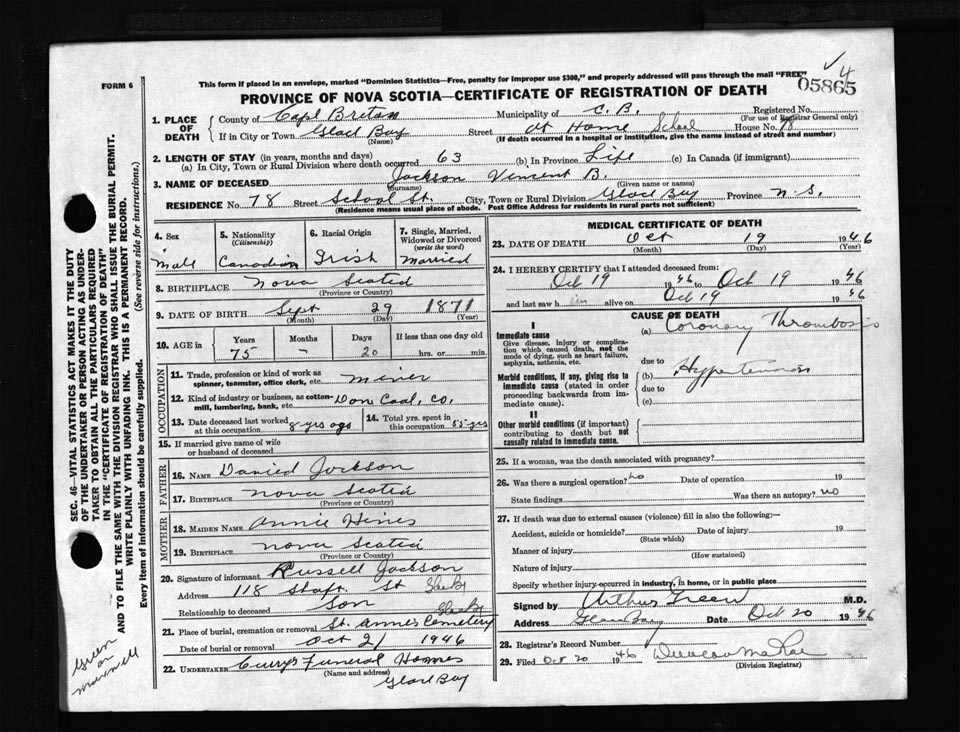 ✓ 4
FORM 6
This form if placed in an envelope, marked "Dominion Statistics—Free, penalty for improper use $300," and properly addressed will pass through the mail "FREE"
05865
PROVINCE OF NOVA SCOTIA—CERTIFICATE OF REGISTRATION OF DEATH
1. PLACE OF DEATH
County of Cape Breton Municipality of C. B. Registered No.
(For use of Registrar General only)
If in City or Town Glace Bay Street At Home School House No. 78
(Name) (If death occurred in a hospital or institution, give the name instead of street and number)
2. LENGTH OF STAY (in years, months and days)
(a) In City, Town or Rural Division where death occurred 63 (b) In Province Life (c) In Canada (if immigrant)
3. NAME OF DECEASED Jackson Vincent B.
(Surname) (Given name or names)
RESIDENCE No. 78 Street School St. City, Town or Rural Division Glace Bay Province N.S.
(Residence means usual place of abode. Post Office Address for residents in rural parts not sufficient)
4. Sex Male
5. Nationality (Citizenship) Canadian
6. Racial Origin Irish
7. Single, Married, Widowed or Divorced (write the word) Married
8. BIRTHPLACE Nova Scotia
(Province or Country)
9. DATE OF BIRTH Sept 29 1871
(Month) (Day) (Year)
10. AGE in Years Months Days If less than one day old
75 - 20 hrs. or min.
OCCUPATION
11. Trade, profession or kind of work as spinner, teamster, office clerk, etc. miner
12. Kind of industry or business, as cotton-mill, lumbering, bank, etc. Dom Coal. Co.
13. Date deceased last worked at this occupation 8 yrs ago
14. Total yrs. spent in this occupation 55 yrs
15. If married give name of wife or husband of deceased
FATHER
16. NAME Daniel Jackson
17. BIRTHPLACE Nova Scotia
MOTHER
18. MAIDEN NAME Annie Hines
19. BIRTHPLACE Nova Scotia
(Province or Country)
20. Signature of informant Russell Jackson
Address 118 Shaft St Glace Bay
Relationship to deceased Son Glace Bay
21. Place of burial, cremation or removal St. Annes Cemetery
Date of burial or removal Oct 21 1946
22. UNDERTAKER Currys Funeral Homes
(Name and address)
Glace Bay
MEDICAL CERTIFICATE OF DEATH
23. DATE OF DEATH Oct 19 1946
(Month) (Day) (Year)
24. I HEREBY CERTIFY that I attended deceased from:
Oct 19 1946 to Oct 19 1946
and last saw him alive on Oct 19 1946
CAUSE OF DEATH
I
Immediate cause
Give disease, injury or complication which caused death, not the mode of dying, such as heart failure, asphyxia, asthenia, etc.
(a) Coronary Thrombosis
due to
Morbid conditions, if any, giving rise to immediate cause (stated in order proceeding backwards from immediate cause).
(b) Hypertension
due to
(c)
II
Other morbid conditions (if important) contributing to death but not causally related to immediate cause.
25. If a woman, was the death associated with pregnancy?
26. Was there a surgical operation? no Date of operation 19
State findings Was there an autopsy? no
27. If death was due to external causes (violence) fill in also the following:—
Accident, suicide or homicide? Date of injury 19
(State which)
Manner of injury
(How sustained)
Nature of injury
Specify whether injury occurred in industry, in home, or in public place
Signed by Arthur Green M.D.
Address Glace Bay Date Oct 20 1946
28. Registrar's Record Number
29. Filed Oct 20 1946 Duncan MacRae
(Division Registrar)
SEC. 46—VITAL STATISTICS ACT MAKES IT THE DUTY
OF THE UNDERTAKER OR PERSON ACTING AS UNDER-
TAKER TO OBTAIN ALL THE PARTICULARS REQUIRED
IN THE "CERTIFICATE OF REGISTRATION OF DEATH"
AND TO FILE THE SAME WITH THE DIVISION REGISTRAR WHO SHALL ISSUE THE BURIAL PERMIT.
WRITE PLAINLY WITH UNFADING INK. THIS IS A PERMANENT RECORD.
Every item of information should be carefully supplied. (See reverse side for instructions.)
Green
or